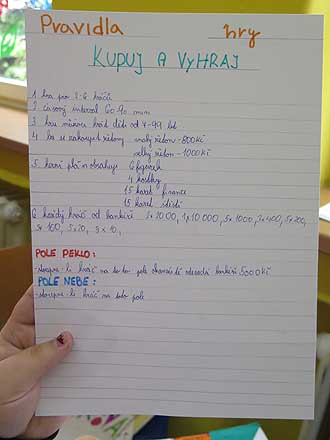 Pravidla hry
KUPUJ A VYHRAJ
1 hra pro 2-6 hráčů
2 časový interval 60-90 min
3 hru můžou hrát děti od 7-99 let
4 za zakoupit žetony malý žeton - 800Kč
velký žeton - 1000Kč
5 herní plán obsahuje 6 figurek
4 kostky
15 karet finance
15 karet štěstí
6 každý hráč od bankéře 10 000, 5x 1000, 5x200,
5x 100, 5x20, 5x 10,
POLE PEKLO:
-stoupne-li hráč na toto pole okamžitě odevzdá bankéři 5000Kč
POLE NEBE:
-stoupne-li hráč na toto pole